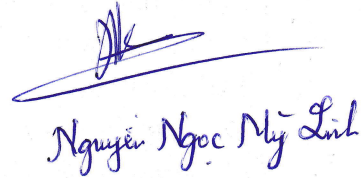 Nguyễn Ngọc Mỹ Linh